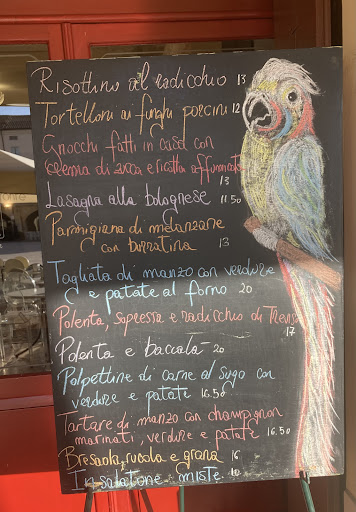 Risottino al radicchio 13
Tortelloni ai funghi porcini 12
Gnocchi fatti in casa con
crema di zucca e ricotta affumicata
13
Lasagna alla bolognese 11.50
Parmigiana di melanzane
con burratina 13
Tagliata di manzo con verdure
e patate al forno 20
Polenta, sopressa e radicchio di Treviso
17
Polenta e baccalà 20
Polpettine di carne al sugo con
verdure e patate 16.50
Tartare di manzo con champignon
marinati, verdure e patate 16.50
Bresaola, rucola e grana 16
Insalatone miste 10